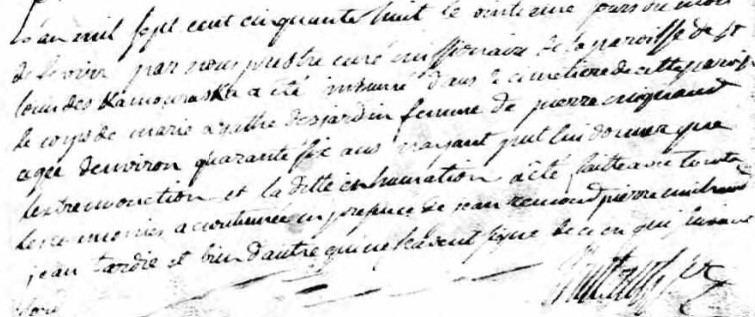 L'an mil sept cent cinquante huit le vintieme jours du mois
de par nous prestre curé missionaire de la paroisse de st
louis des Kamouraska a été inhumé dans le cimetiere de cette paroisse
le corps de marie agathe desjardin femme de pierre mignaud
agée denviron quarante six ans nayant put lui donner que
lextremonction et la ditte inhumation a été faitte avec toute
les ceremonies accoutumée en presence de jean pierre michaud
jean tardie et bien dautre qui ne scavent signe de ce en qui